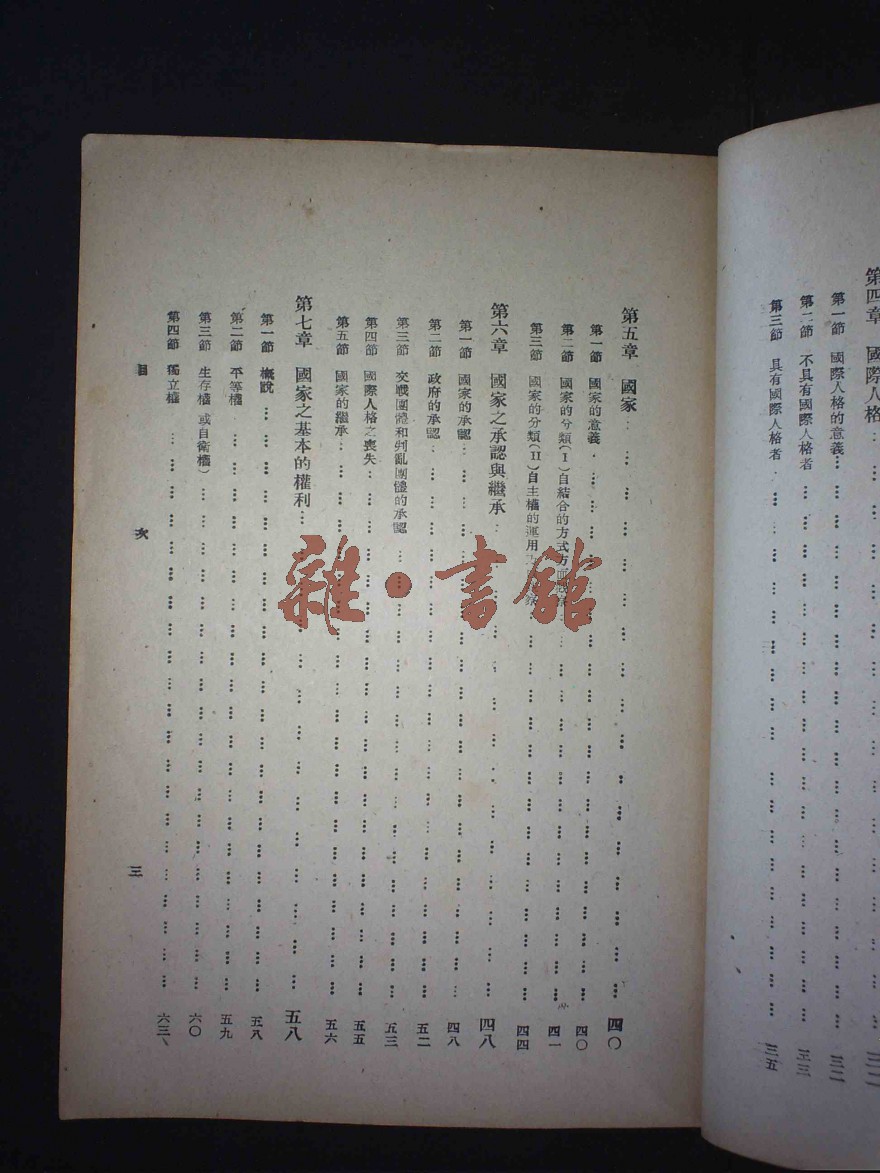 第四章 國際人格
第一節 國際人格的意義 三二
第二節 不具有國際人格者 三三
第三節 具有國際人格者 三五
第五章 國家 四〇
第一節 國家的意義 四〇
第二節 國家的分類(I)自結合的方式方面 四一
第三節 國家的分類(II)自主權的運用 四四
第六章 國家之承認與繼承 四八
第一節 國家的承認 四八
第二節 政府的承認 五二
第三節 交戰團體和判亂團體的承認 五三
第四節 國際人格之喪失 五五
第五節 國家的繼承 五六
第七章 國家之基本的權利 五八
第一節 概說 五八
第二節 平等權 五九
第三節 生存權(或自衛權) 六〇
第四節 獨立權 六三
目 次 三
雜·書館